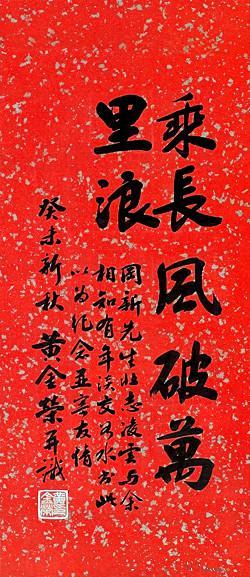 乘長風破萬
里浪
岡新先生壯志凌雲與余
相知有年淡交如水書此
以為紀念並寄友情
癸未新秋 黃金榮并識
黃金榮